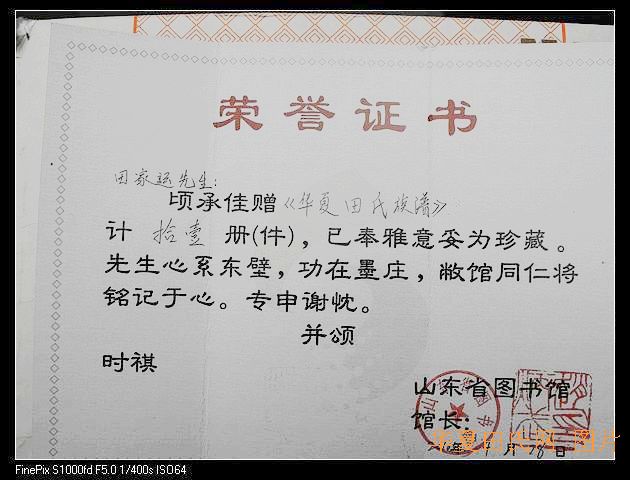 荣誉证书
田家运先生:
顷承佳赠《华夏田氏族谱》
计 拾壹 册(件)，已奉雅意妥为珍藏。
先生心系东壁，功在墨庄，敝馆同仁将
铭记于心。专申谢忱。
并颂
时祺
山东省图书馆
馆长:
月 18 日
华夏田氏网 图片
FinePix S1000fd F5.0 1/400s ISO64